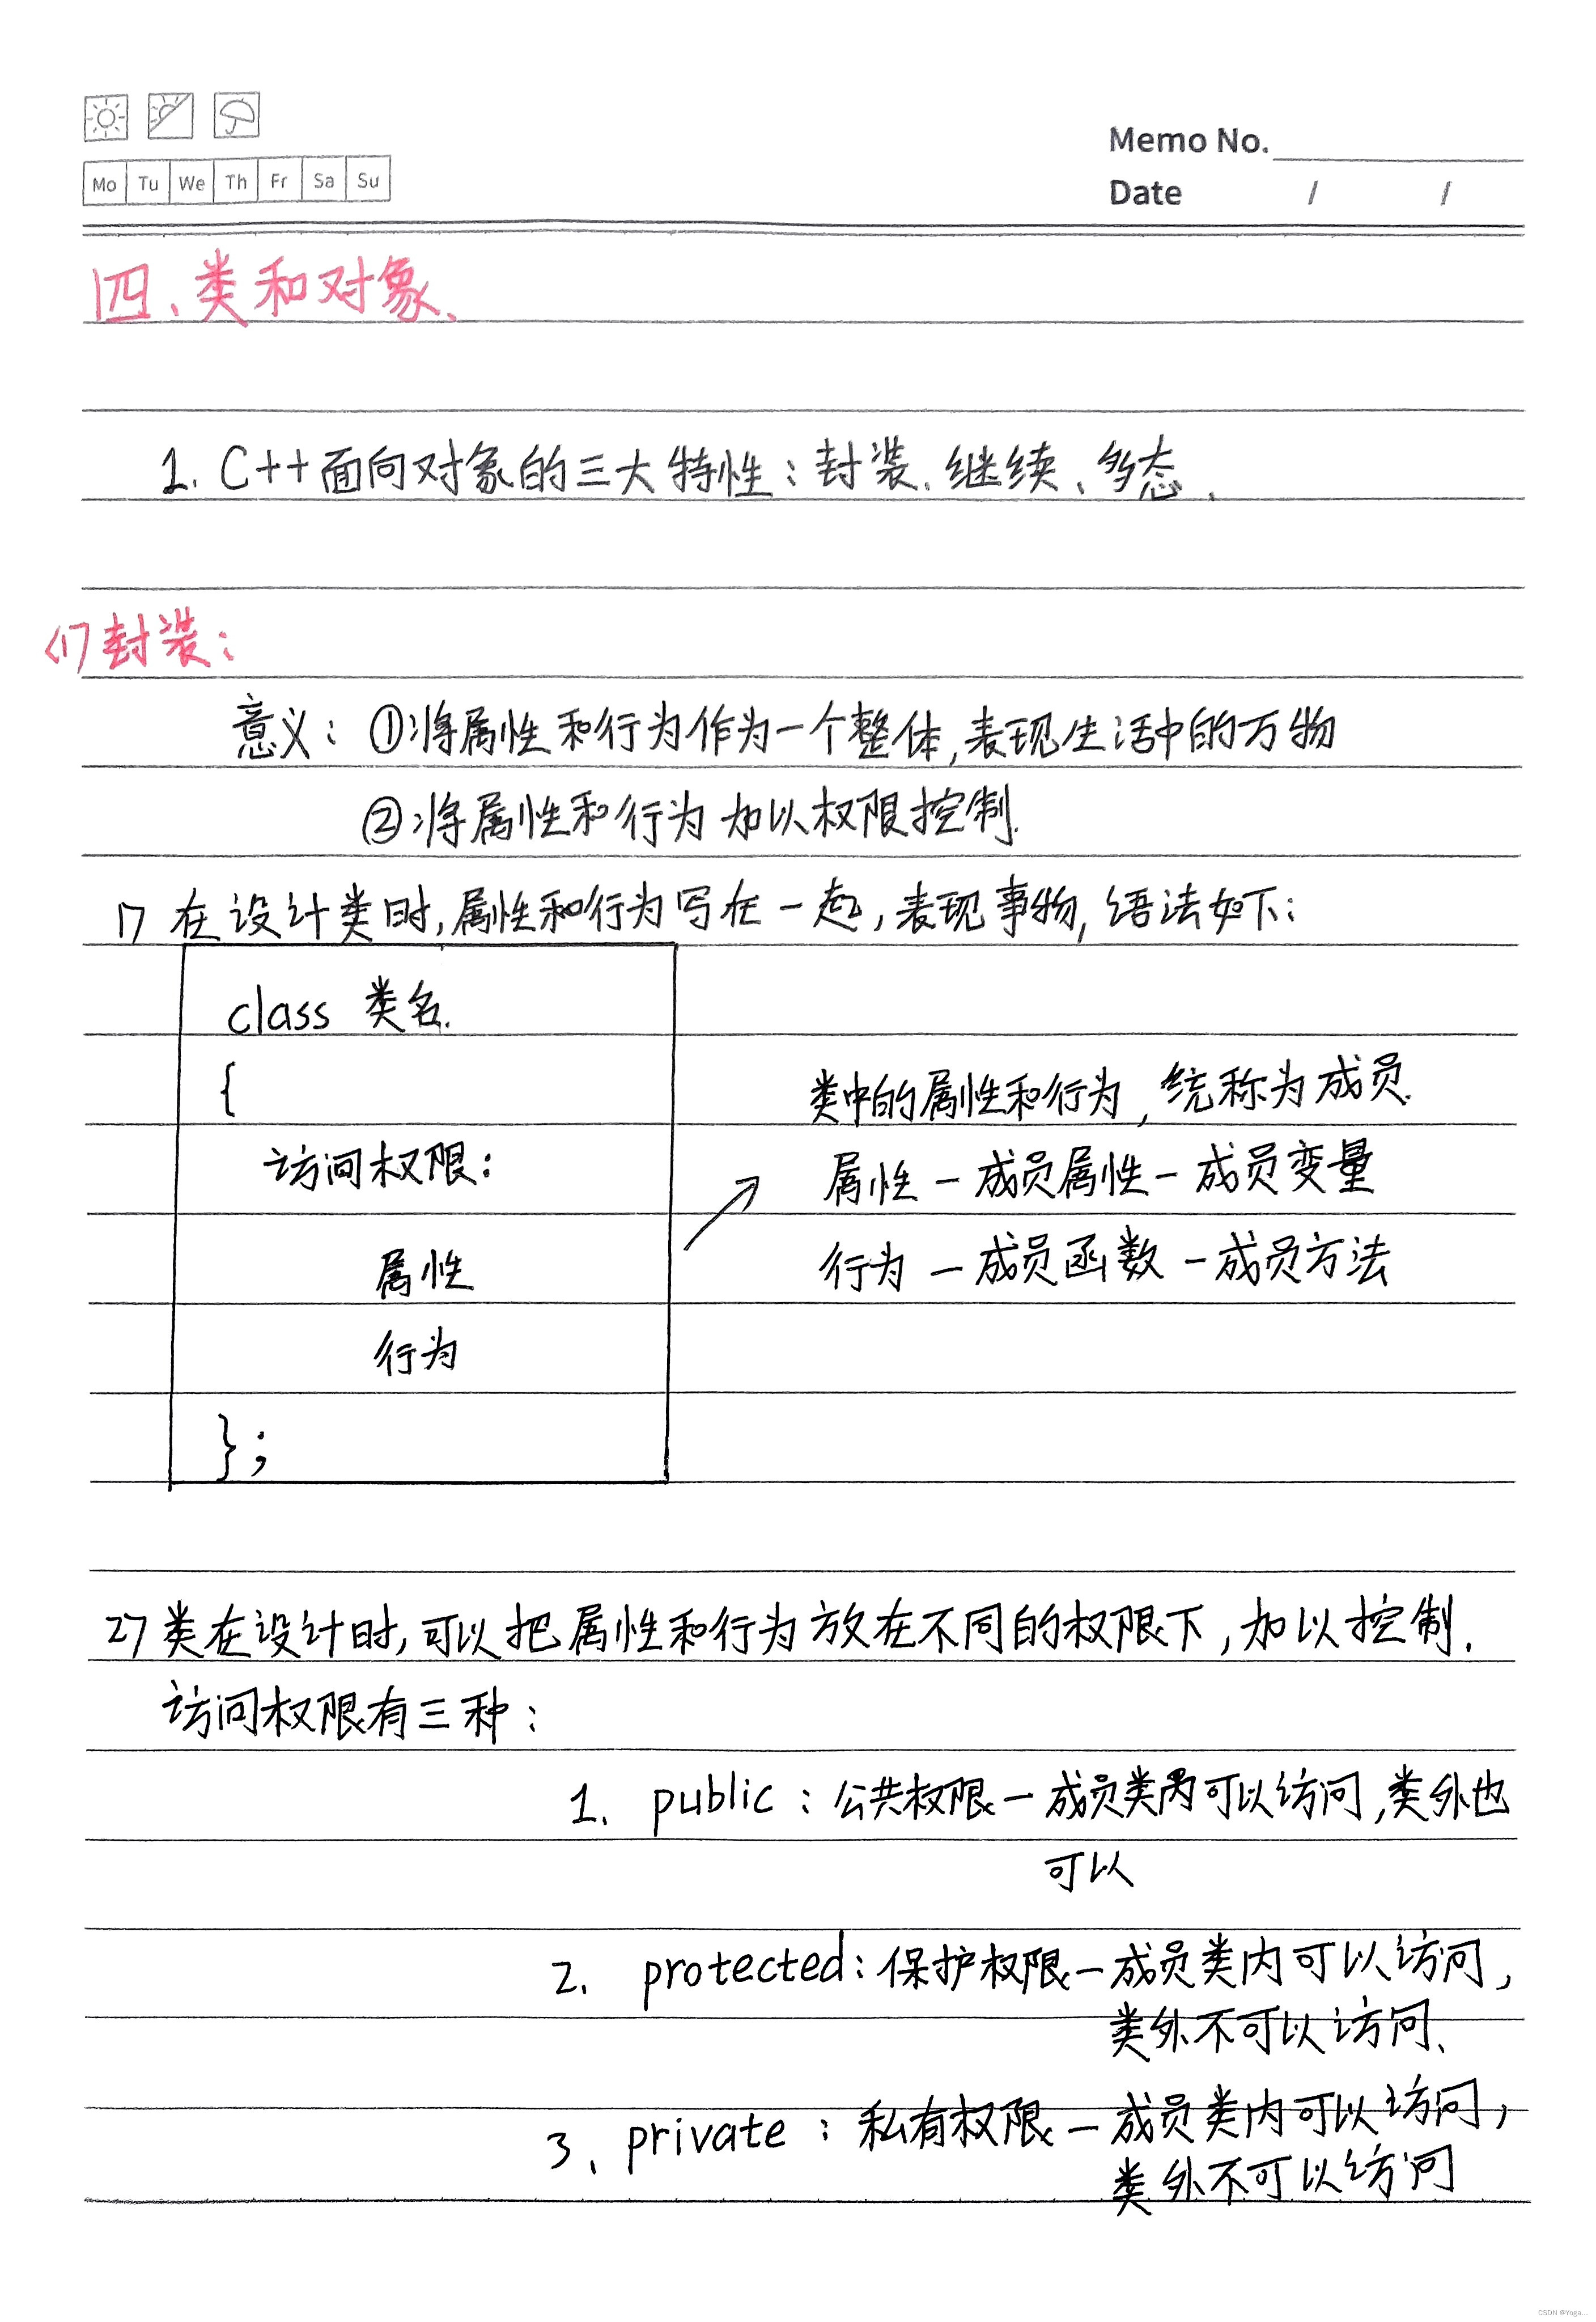 Mo Tu We Th Fr Sa Su
Memo No.
Date / /
四、类和对象、
1. C++面向对象的三大特性：封装、继续、多态、
<1>封装：
意义：①将属性和行为作为一个整体,表现生活中的万物
②将属性和行为加以权限控制.
1> 在设计类时,属性和行为写在一起,表现事物,语法如下：
class 类名.
{
访问权限：
属性
行为
};
类中的属性和行为,统称为成员.
属性－成员属性－成员变量
行为－成员函数－成员方法
2> 类在设计时,可以把属性和行为放在不同的权限下,加以控制.
访问权限有三种：
1. public：公共权限－成员类内可以访问,类外也
可以
2. protected：保护权限－成员类内可以访问,
类外不可以访问、
3、private：私有权限－成员类内可以访问,
类外不可以访问
CSDN @Yoga...